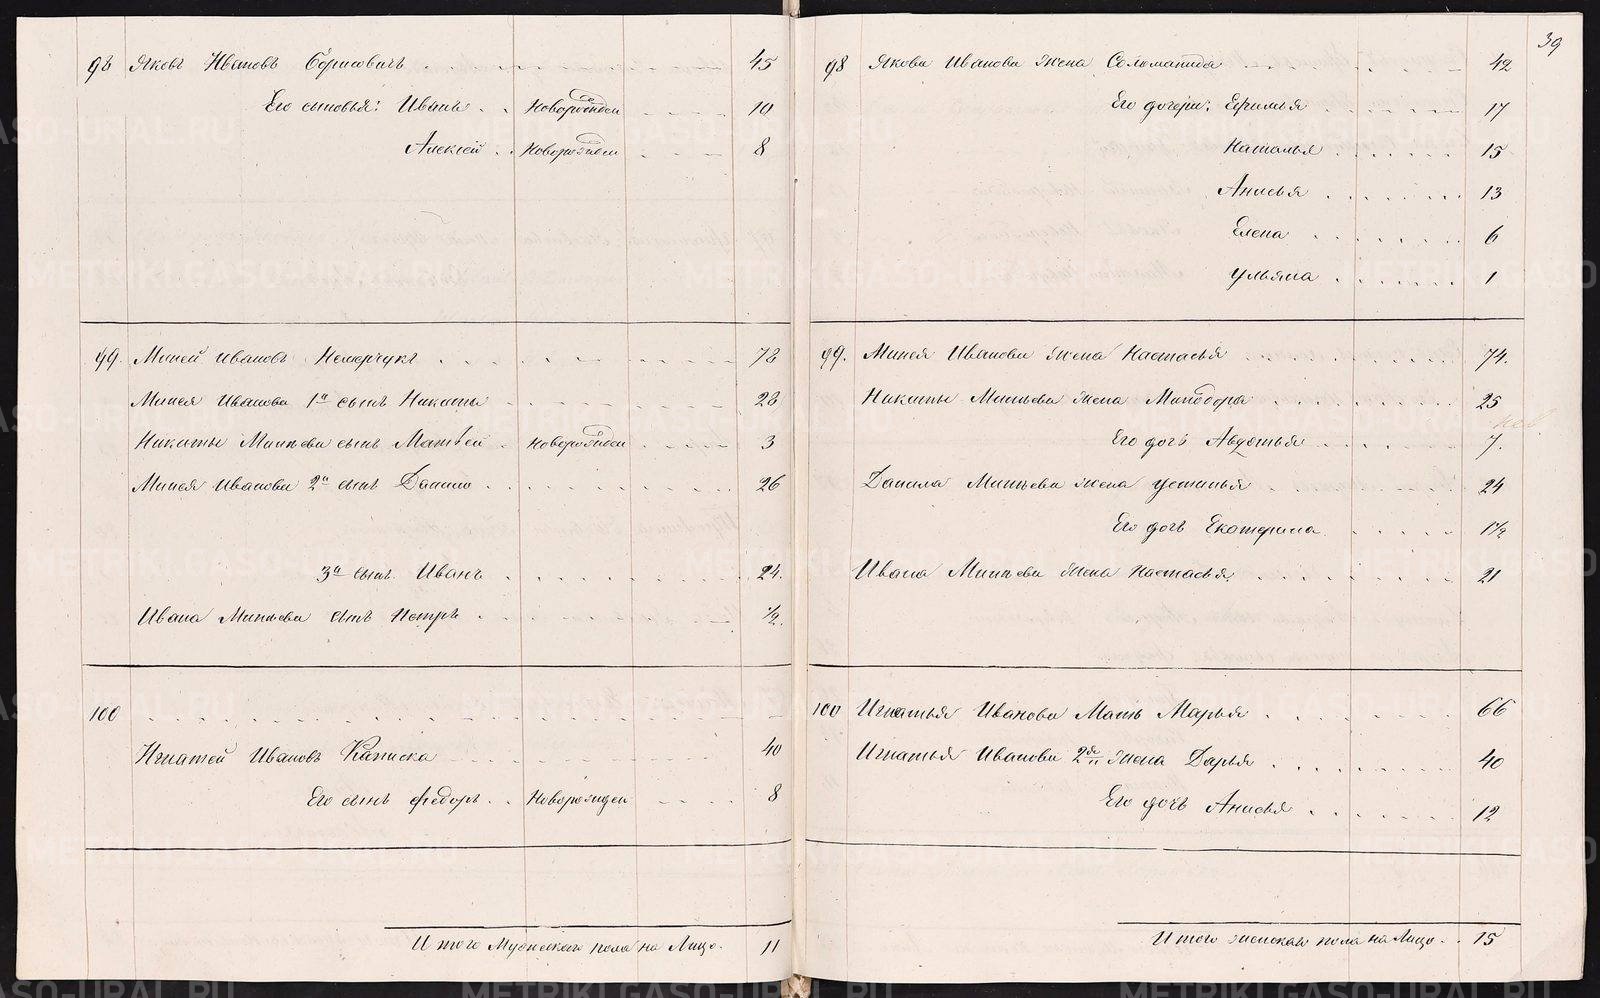 98 Яковъ Ивановъ Борисовичъ 45
Его сыновья: Иванъ Новорожден 10
Алексей Новорожден 8
99. Миней Ивановъ Немерчукъ 78
Минея Иванова 1й сынъ Никита 28
Никиты Минѣева сынъ Матвей Новорожден 3
Минея Иванова 2й сынъ Данило 26
3й сынъ Иванъ 24.
Ивана Минѣева сынъ Петръ 1/2.
100
Игнатей Ивановъ Каписка 40
Его сынъ Федоръ Новорожден 8
Итого Мужескаго пола на Лицо. 11
39
98 Якова Иванова жена Соломанида 42
Его дочери: Ефимья 17
Наталья 15
Анисья 13
Елена 6
Ульяна 1
99. Минея Иванова жена Настасья 74.
Никиты Минѣева жена Минодора 25
Его дочь Авдотья 7.
Данила Минѣева жена Устинья 24
Его дочь Екатерина 1 1/2
Ивана Минѣева жена Настасья 21
100 Игнатья Иванова Мать Марья 66
Игнатья Иванова 2я жена Дарья 40
Его дочь Анисья 12
Итого женскаго пола на Лицо. 15
METRIKI.GASO-URAL.RU